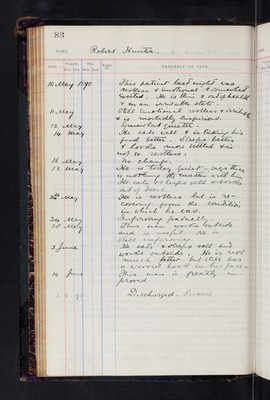 83
NAME, Robert Hunter
DATE. PROGRESS OF CASE.
10 May 1890 This patient last night was
restless & emotional & somewhat
excited. He is thin & out of health
& in an irritable state.
11 May Still emotional restless & irritable
& is morbidly suspicious.
12 May Somewhat quieter
14 May He eats well & is taking his
food better. Sleeps better
& looks more settled & is
not so restless.
16 May No change.
18 May He is today quiet. says there
is nothing the matter with him
He eats & sleeps well & works
out of doors.
May He is restless but is re-
covering from the condition
in which he was.
24 May Improving gradually
May This man works outside
and is useful. He is
still improving.
3 June He eats & sleeps well and
works outside. He is not
much better but still has
a worried look in his face
14 June This man is greatly im-
proved
Discharged.